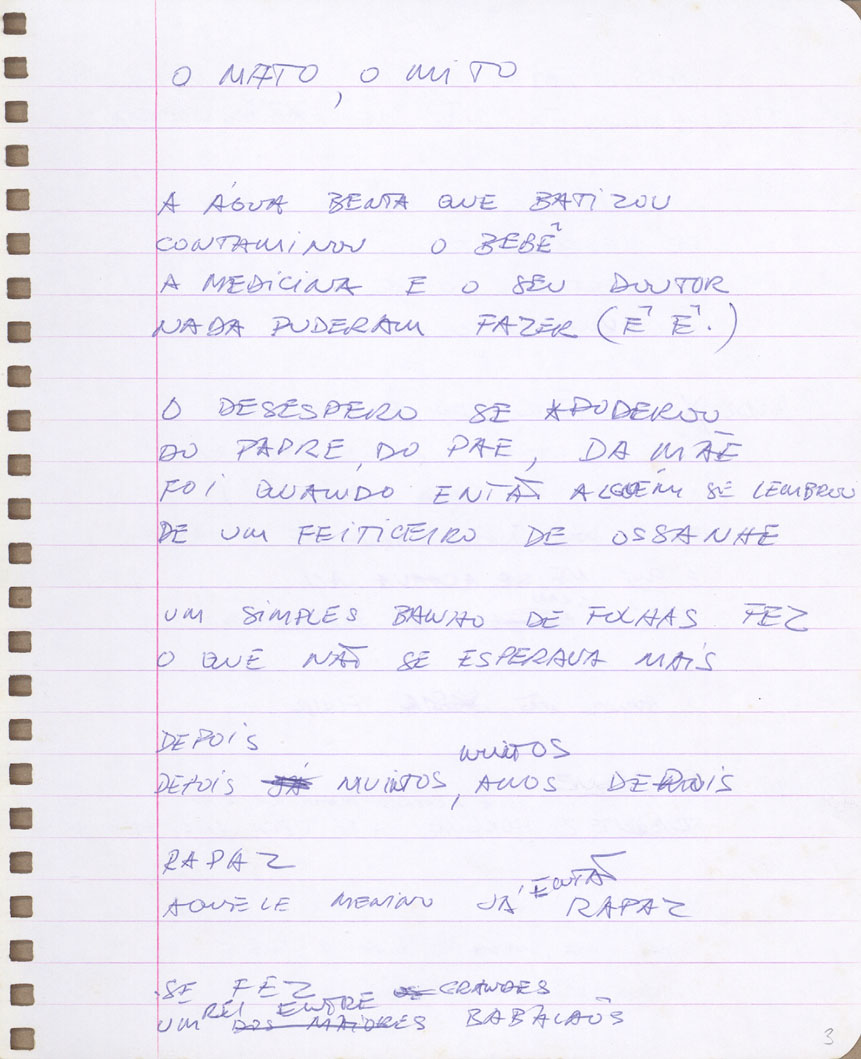 O MATO, O MITO
A ÁGUA BENTA QUE BATIZOU
CONTAMINOU O BEBÊ
A MEDICINA E O SEU DOUTOR
NADA PUDERAM FAZER (Ê Ê.)
O DESESPERO SE APODEROU
DO PADRE, DO PAE, DA MÃE
FOI QUANDO ENTÃO ALGUÉM SE LEMBROU
DE UM FEITICEIRO DE OSSANHE
UM SIMPLES BANHO DE FOLHAS FEZ
O QUE NÃO SE ESPERAVA MAIS
DEPOIS
MUITOS
DEPOIS JÁ MUINTOS, ANOS DEPOIS
RAPAZ
ENTÃO
AQUELE MENINO JÁ RAPAZ
SE FEZ GRANDES
REI ENTRE
UM DOS MAIORES BABALAÔS
3